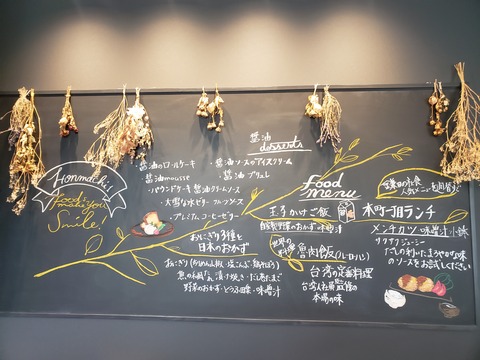 Honmachi!
Food
makes You
Smile!
醤油
desserts
・醤油のロールケーキ
・醤油ソースのアイスクリーム
・醤油mousse
・醤油ブリュレ
・パウンドケーキ 醤油クリームソース
・大雪な水ゼリー フルーツソース
・プレミアムコーヒーゼリー
おにぎり多種と
日本のおかず
おにぎり
塩こんぶ
野菜のおかず・とうふ田楽・味噌汁
food
menu
玉子かけご飯
自家製野菜のおかず 味噌汁
世界の
料理
魯肉飯(ルーローハン)
台湾の定番料理
台湾人社員監修の
本場の味
人気メニューを月替りで
本町一丁目ランチ
メンチカツ 味噌汁 小鉢
サクサクジューシー
だしの利いたまろやかな味
のソースをお試しください